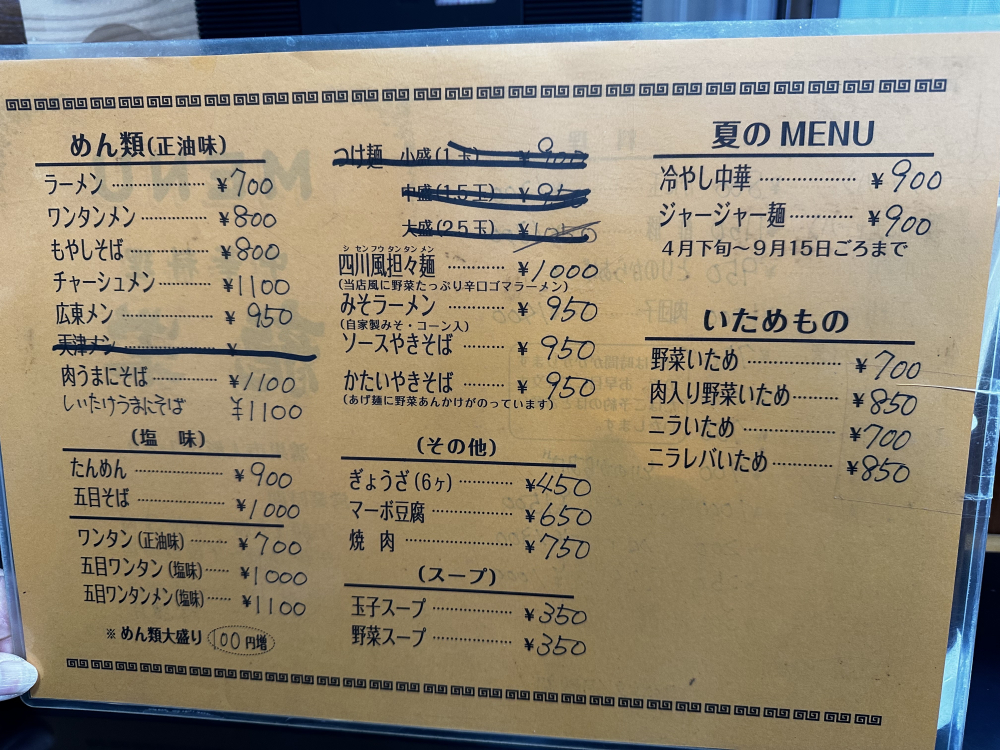 めん類(正油味)
ラーメン ¥700
ワンタンメン ¥800
もやしそば ¥800
チャーシュメン ¥1100
広東メン ¥950
天津メン ¥
肉うまにそば ¥1100
しいたけうまにそば ¥1100
(塩 味)
たんめん ¥900
五目そば ¥1000
ワンタン(正油味) ¥700
五目ワンタン(塩味) ¥1000
五目ワンタンメン(塩味) ¥1100
※めん類大盛り 100円増
つけ麺 小盛(1玉) ¥900
中盛(1.5玉) ¥950
大盛(2.5玉) ¥1050
シセンフウタンタンメン
四川風担々麺 ¥1000
(当店風に野菜たっぷり辛口ゴマラーメン)
みそラーメン ¥950
(自家製みそ・コーン入)
ソースやきそば ¥950
かたいやきそば ¥950
(あげ麺に野菜あんかけがのっています)
(その他)
ぎょうざ(6ヶ) ¥450
マーボ豆腐 ¥650
焼 肉 ¥750
(スープ)
玉子スープ ¥350
野菜スープ ¥350
夏のMENU
冷やし中華 ¥900
ジャージャー麺 ¥900
4月下旬〜9月15日ごろまで
いためもの
野菜いため ¥700
肉入り野菜いため ¥850
ニラいため ¥700
ニラレバいため ¥850